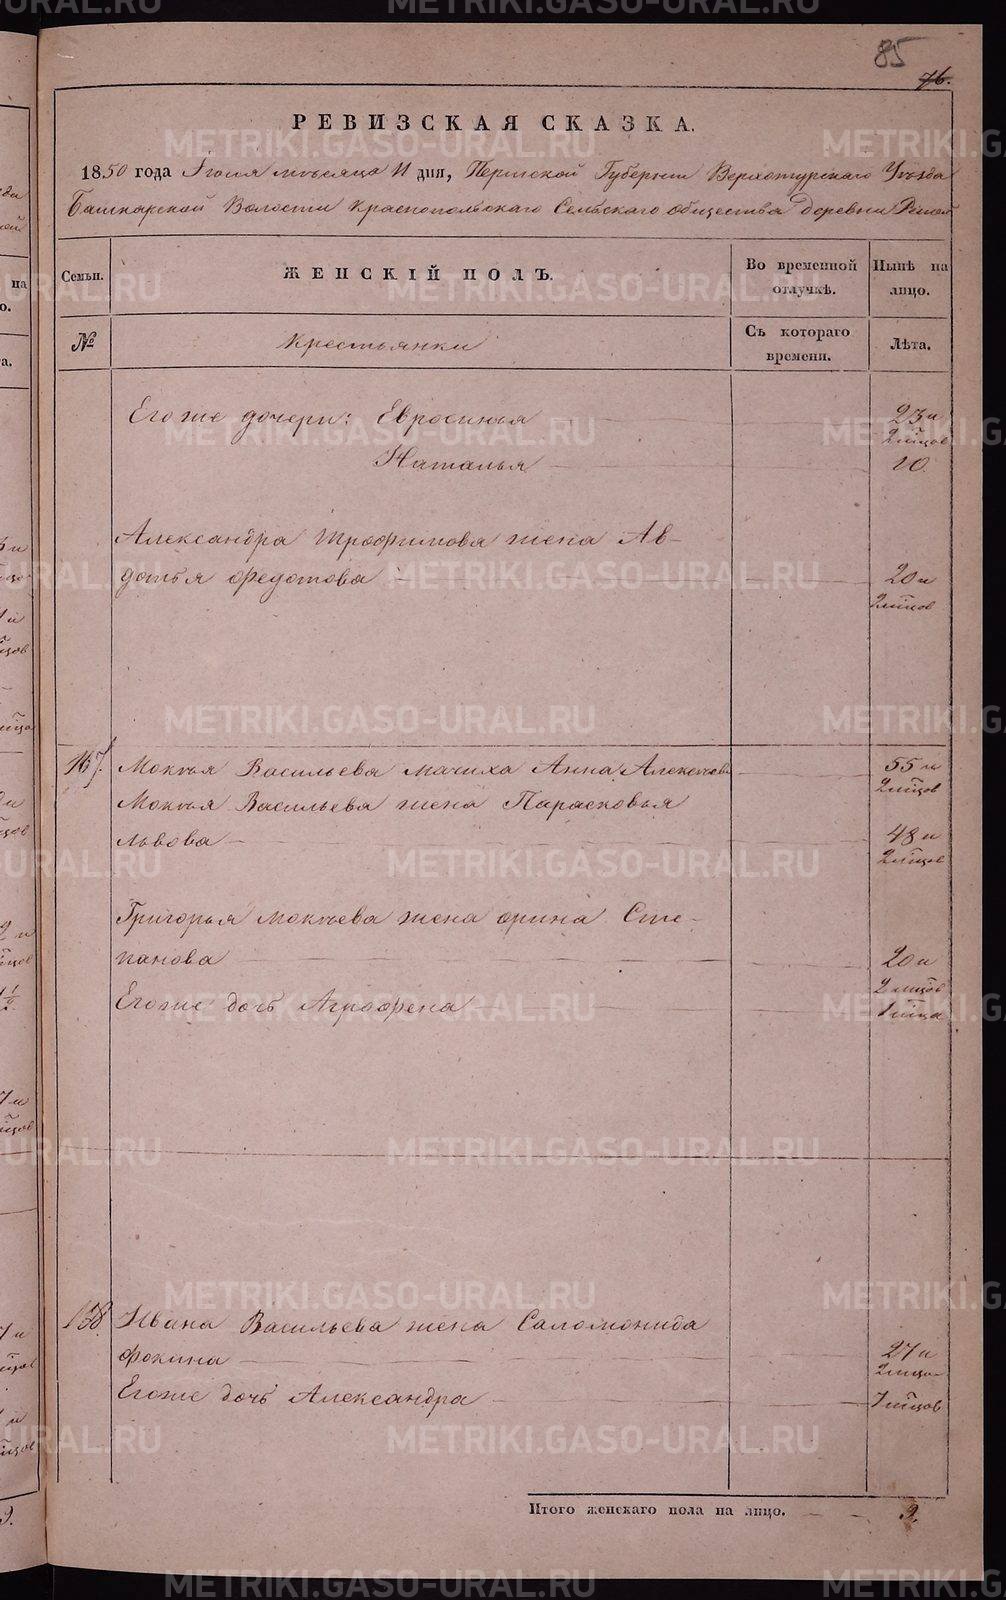 85
76.
РЕВИЗСКАЯ СКАЗКА.
1850 года Іюля мѣсяца 11 дня, Пермской Губерніи Верхотурскаго Уѣзда
Башкарской Волости Краснопольскаго Сельскаго общества деревни
Семьи. ЖЕНСКІЙ ПОЛЪ. Во временной отлучкѣ. Нынѣ на лицо.
№ Крестьянки Съ котораго времени. Лѣта.
Его же дочери: Евросинья 23 и
2 мѣцов
Наталья 10.
Александра Трофимова жена Ав-
дотья Федотова 20 и
2 мѣцов
Мокѣя Васильева мачиха Анна Алексѣева 55 и
2 мѣцов
Мокѣя Васильева жена Парасковья
Львова 48 и
2 мѣцов
Григорья Мокѣева жена Орина Сте-
панова 20 и
2 мѣцов
Его же дочь Аграфена 1 мѣца
138. Ивана Васильева жена Саломонида
Фокина 27 и
2 мѣца
Его же дочь Александра 7 мѣцов
Итого женскаго пола на лицо. 9.
METRIKI.GASO-URAL.RU